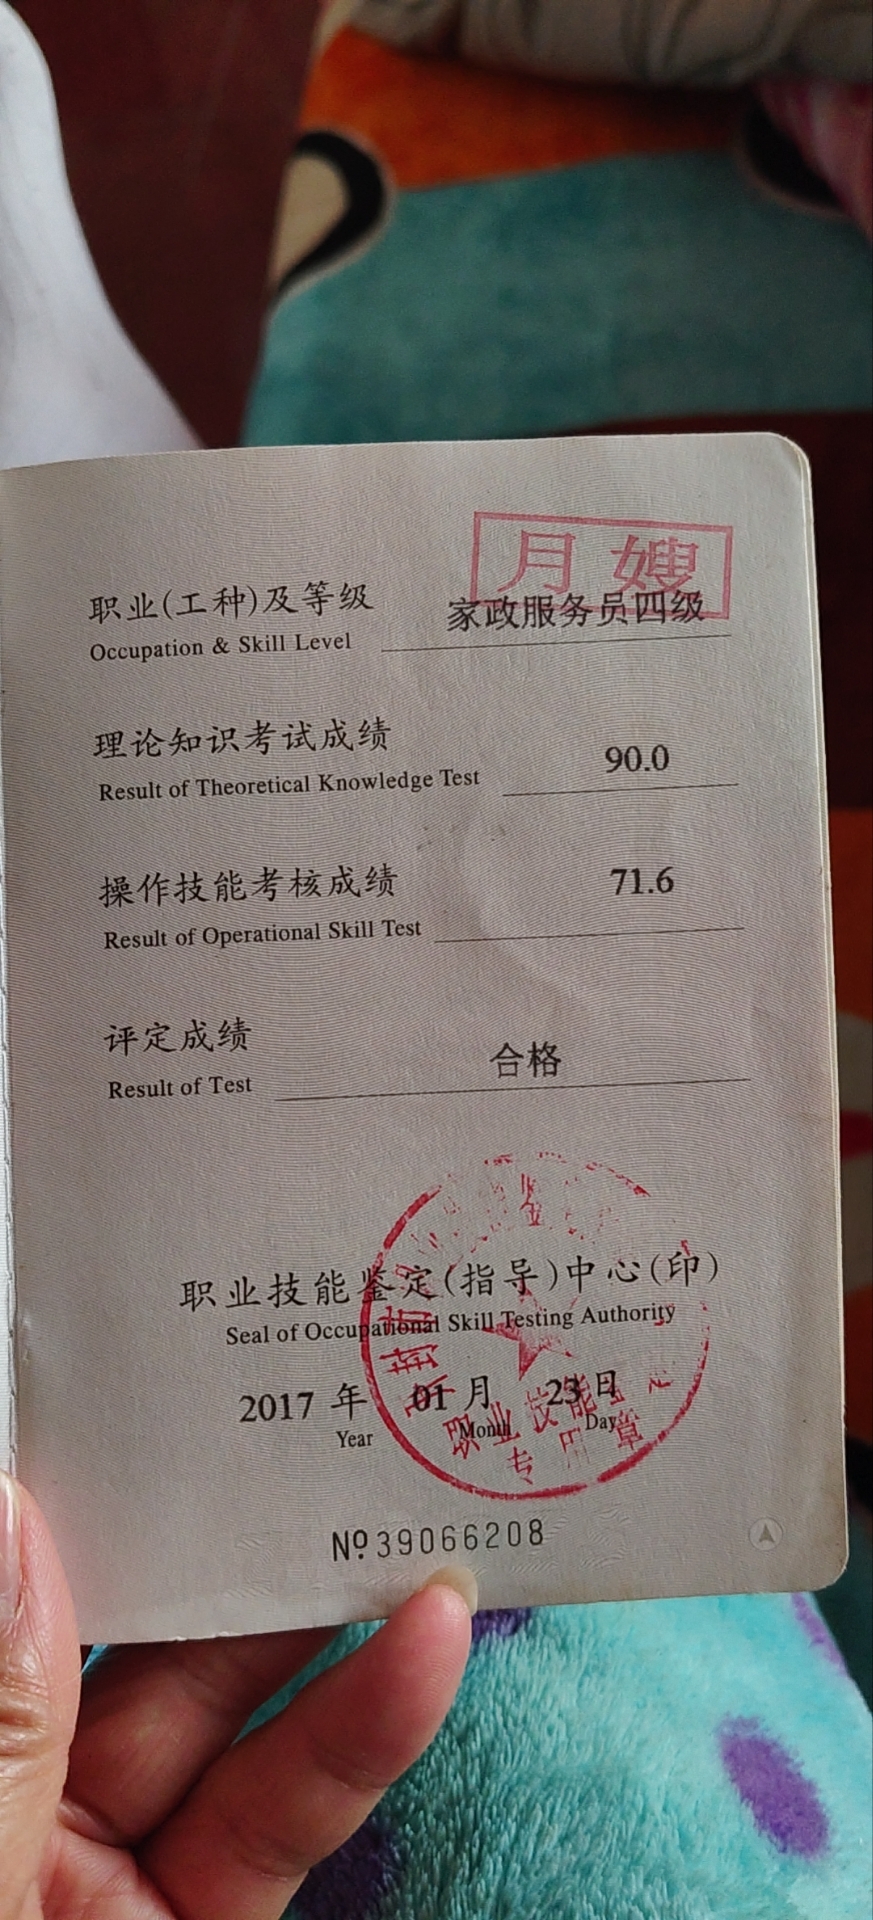 月嫂
职业(工种)及等级
家政服务员四级
Occupation & Skill Level
理论知识考试成绩
90.0
Result of Theoretical Knowledge Test
操作技能考核成绩
71.6
Result of Operational Skill Test
评定成绩
合格
Result of Test
职业技能鉴定(指导)中心(印)
Seal of Occupational Skill Testing Authority
2017 年 01 月 23 日
Year Month Day
职业技能 定
专用章
№39066208